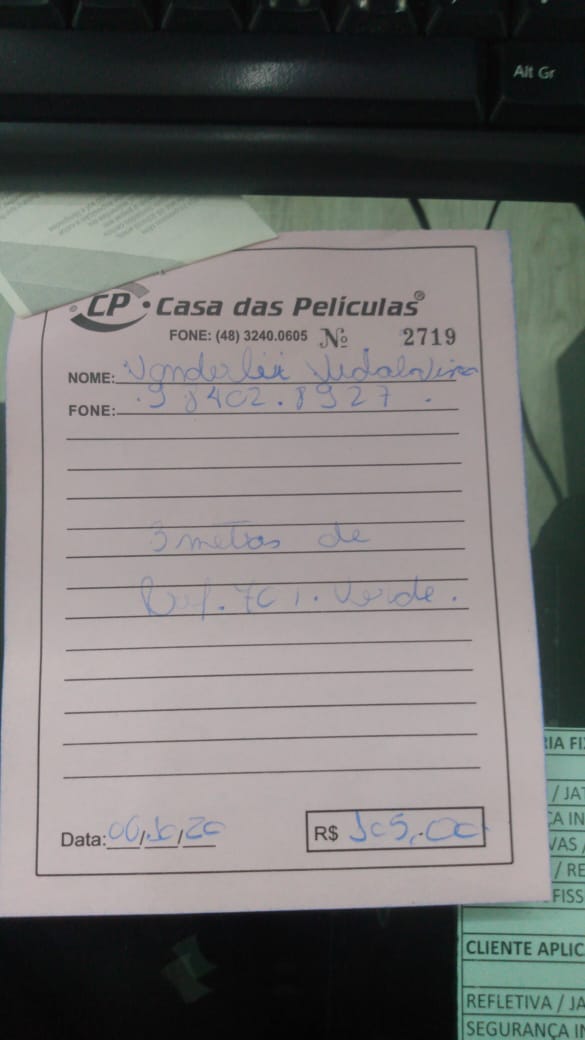 Alt Gr
CP Casa das Películas®
FONE: (48) 3240.0605 Nº 2719
NOME: Vanderlei
FONE: 98402.8927.
3 metros de
Ref. 70 . Verde.
Data: 06/10/20 R$ 105,00
RIA FI
/ JAT
ÇA IN
VAS /
/ RE
FISS
CLIENTE APLIC
REFLETIVA / JA
SEGURANÇA IN